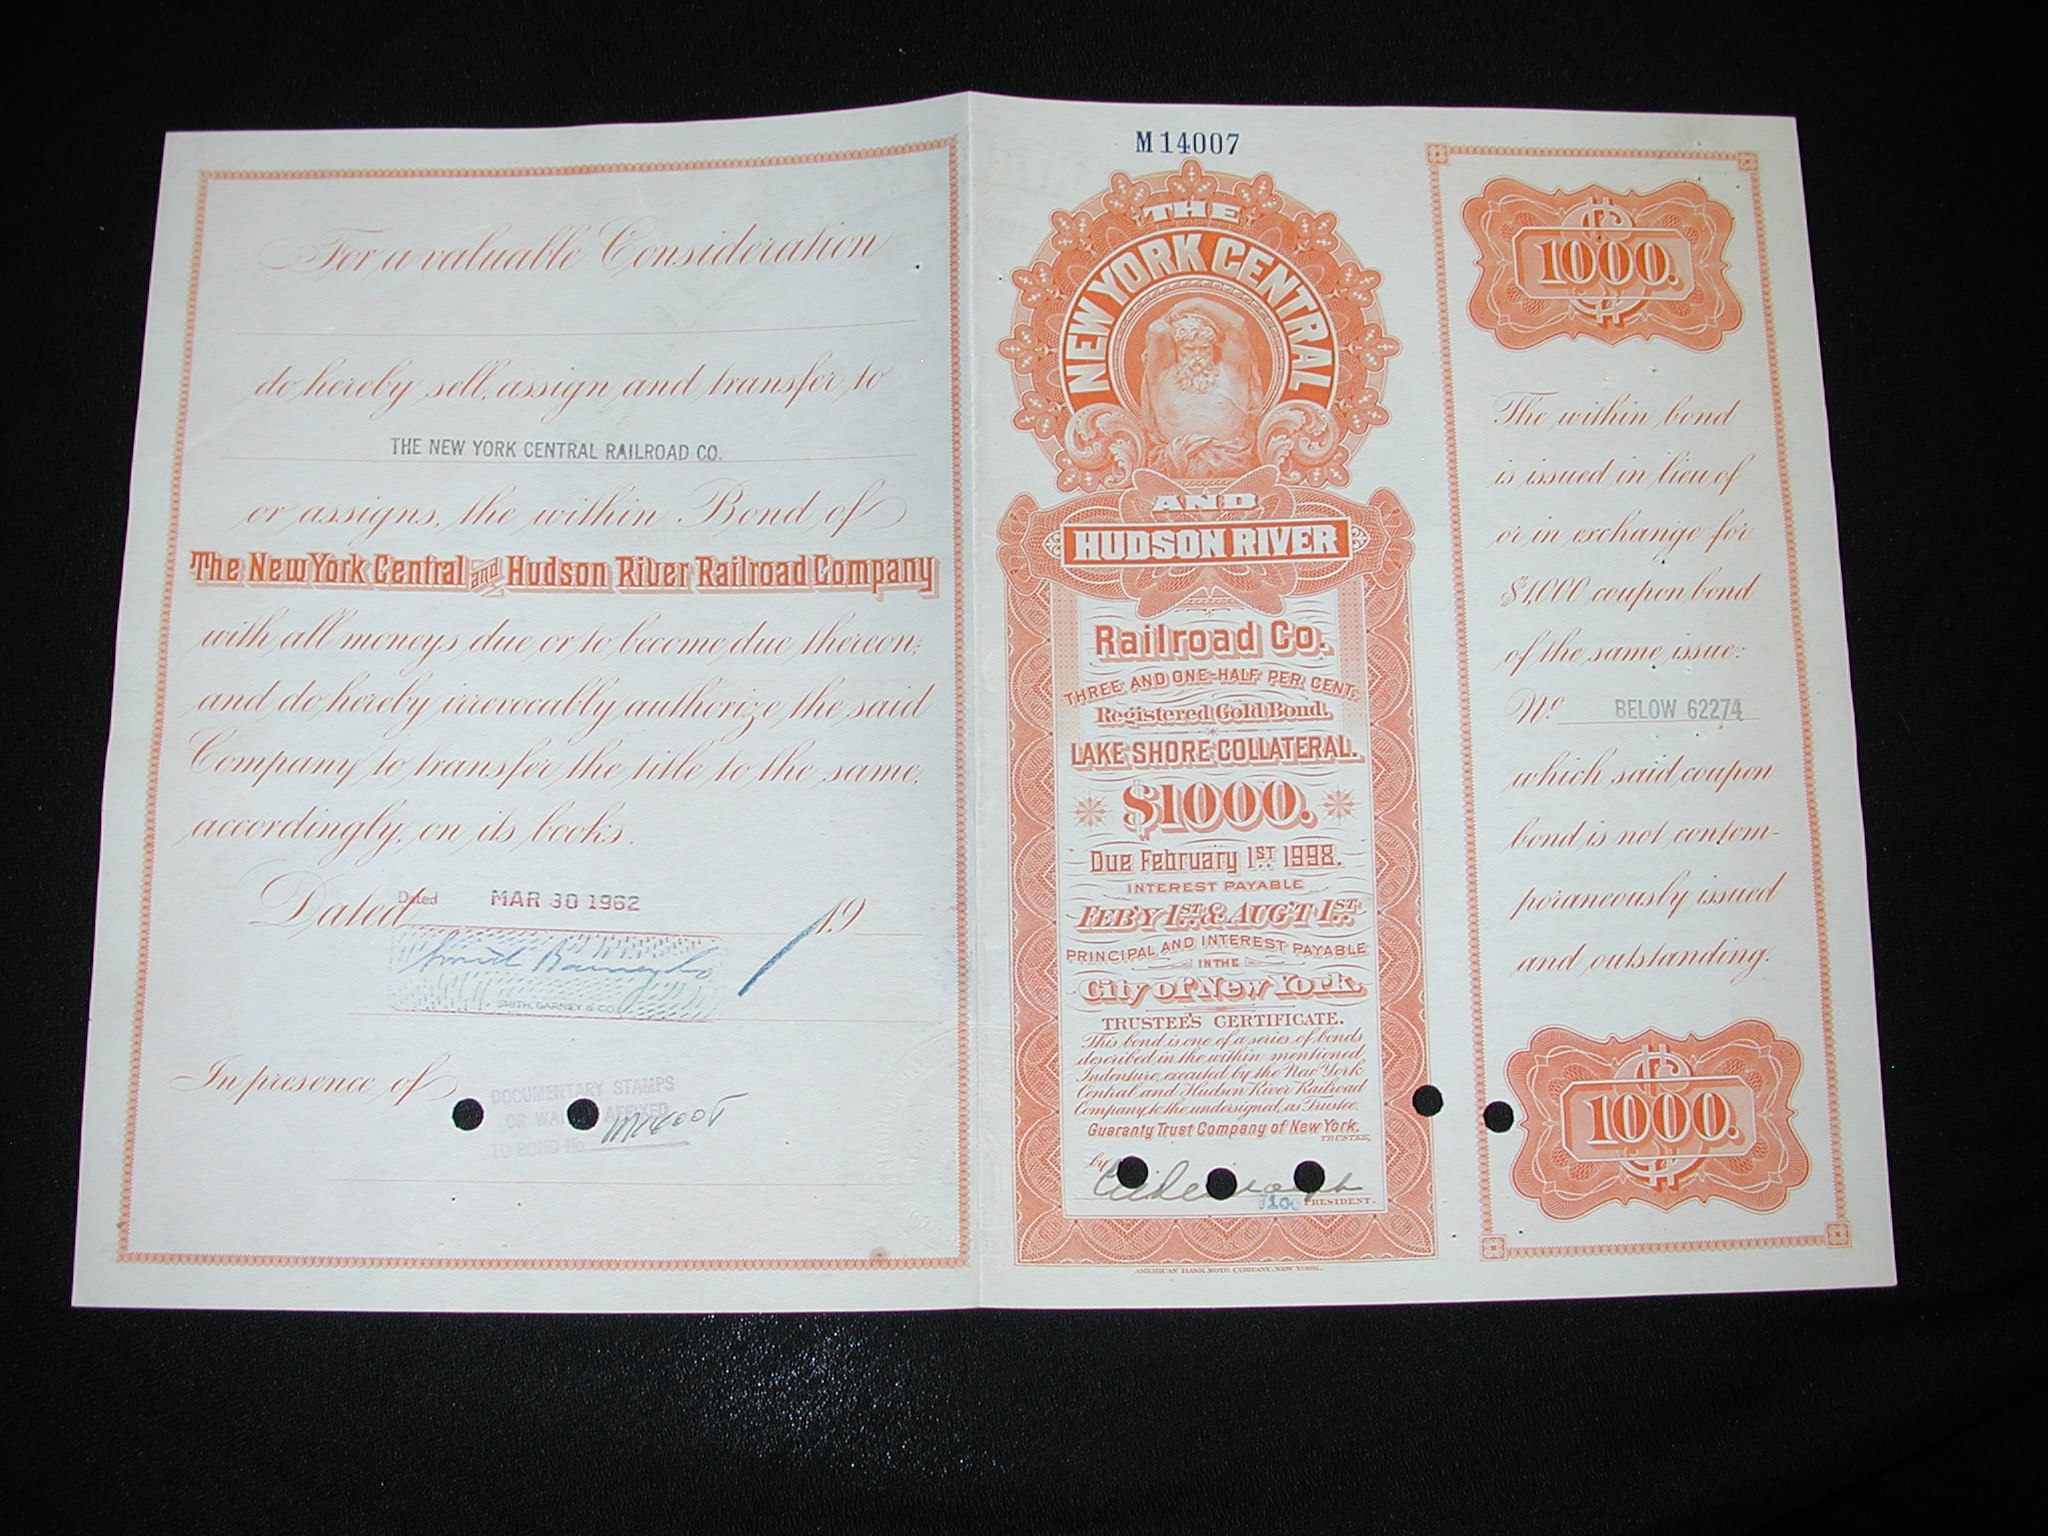 For a valuable Consideration
do hereby sell, assign and transfer to
THE NEW YORK CENTRAL RAILROAD CO.
or assigns, the within Bond of
The New York Central and Hudson River Railroad Company
with all moneys due or to become due thereon;
and do hereby irrevocably authorize the said
Company to transfer the title to the same,
accordingly, on its books.
Dated Dated MAR 30 1962 19
SMITH, BARNEY & CO.
In presence of
DOCUMENTARY STAMPS
OR AFFIXED
TO BOND No.
M 14007
THE
NEW YORK CENTRAL
AND
HUDSON RIVER
Railroad Co.
THREE AND ONE-HALF PER CENT.
Registered Gold Bond.
LAKE SHORE COLLATERAL.
$1000.
Due February 1ST 1998.
INTEREST PAYABLE
FEB'Y 1ST & AUG'T 1ST
PRINCIPAL AND INTEREST PAYABLE
IN THE
City of New York.
TRUSTEE'S CERTIFICATE.
This bond is one of a series of bonds
described in the within mentioned
Indenture, executed by the New York
Central and Hudson River Railroad
Company, to the undersigned, as Trustee.
Guaranty Trust Company of New York.
TRUSTEE,
by
PRESIDENT.
AMERICAN BANK NOTE COMPANY, NEW YORK.
$
1000.
The within bond
is issued in lieu of
or in exchange for
$1,000 coupon bond
of the same issue:
No. BELOW 62274
which said coupon
bond is not contem-
poraneously issued
and outstanding.
$
1000.